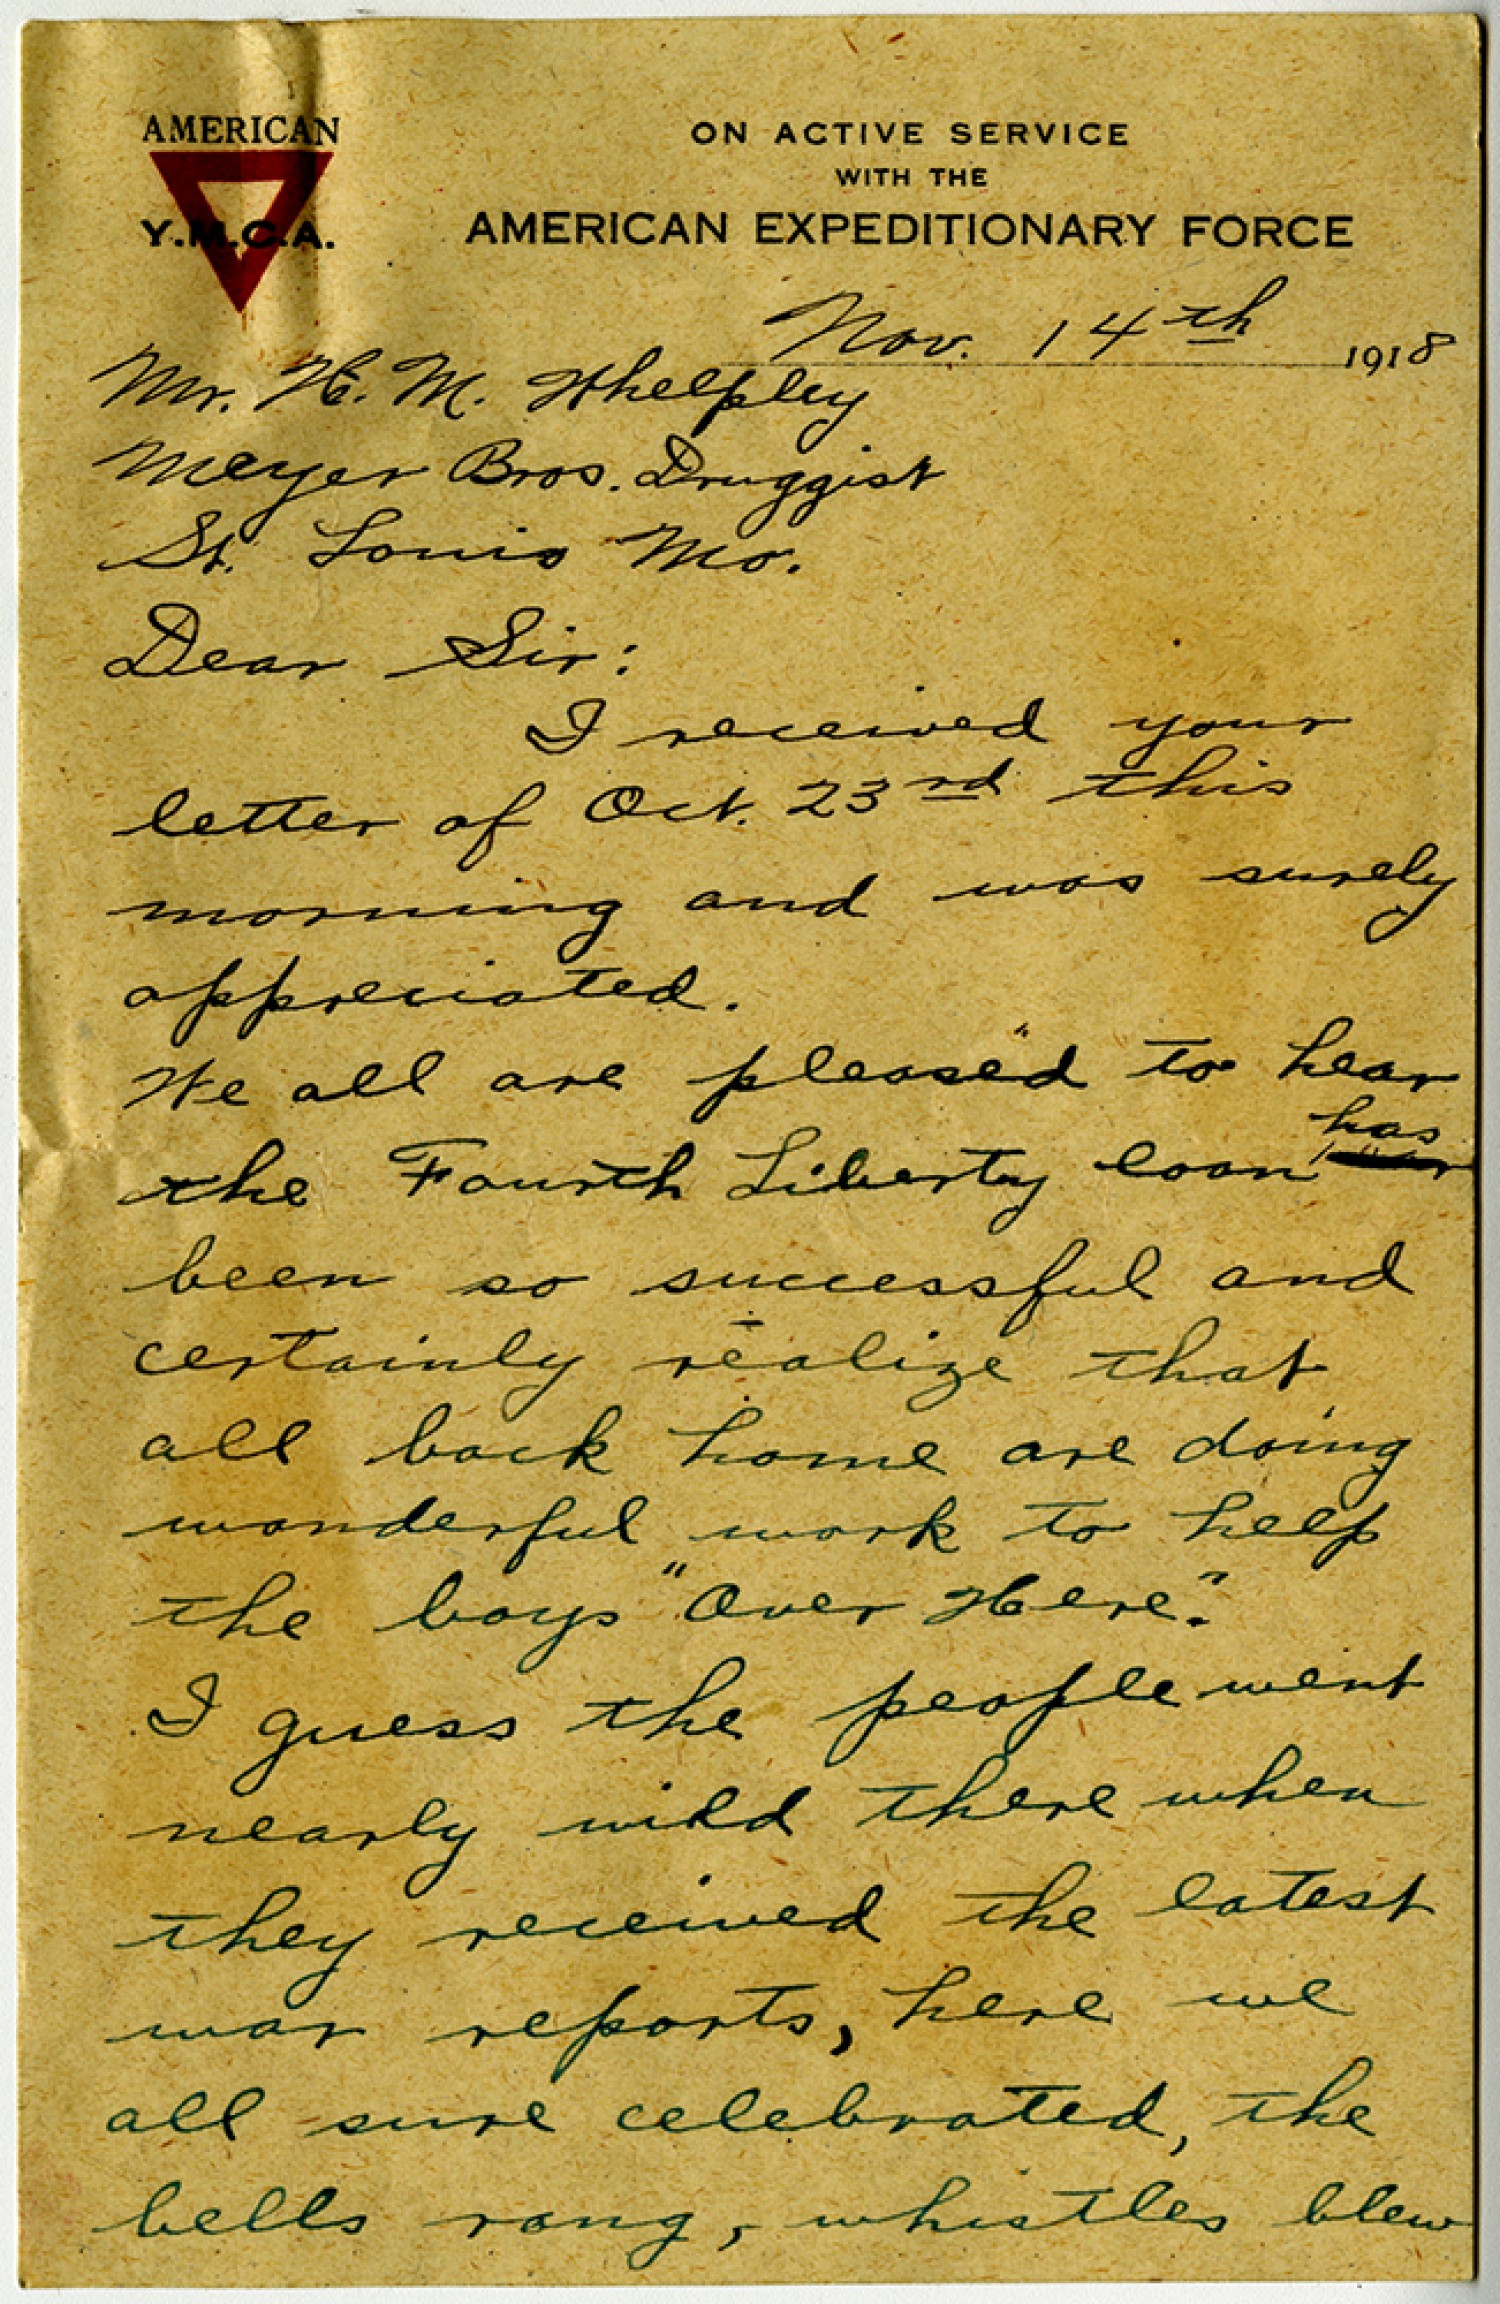 AMERICAN
Y.M.C.A.
ON ACTIVE SERVICE
WITH THE
AMERICAN EXPEDITIONARY FORCE
Nov. 14th 1918
Mr. H. M. Whelpley
Meyer Bros. Druggist
St. Louis Mo.
Dear Sir:
I received your
letter of Oct. 23rd this
morning and was surely
appreciated.
We all are pleased to hear
the Fourth Liberty loan has
been so successful and
certainly realize that
all back home are doing
wonderful work to help
the boys "Over Here".
I guess the people went
nearly wild there when
they received the latest
war reports, here we
all sure celebrated, the
bells rang, whistles blew